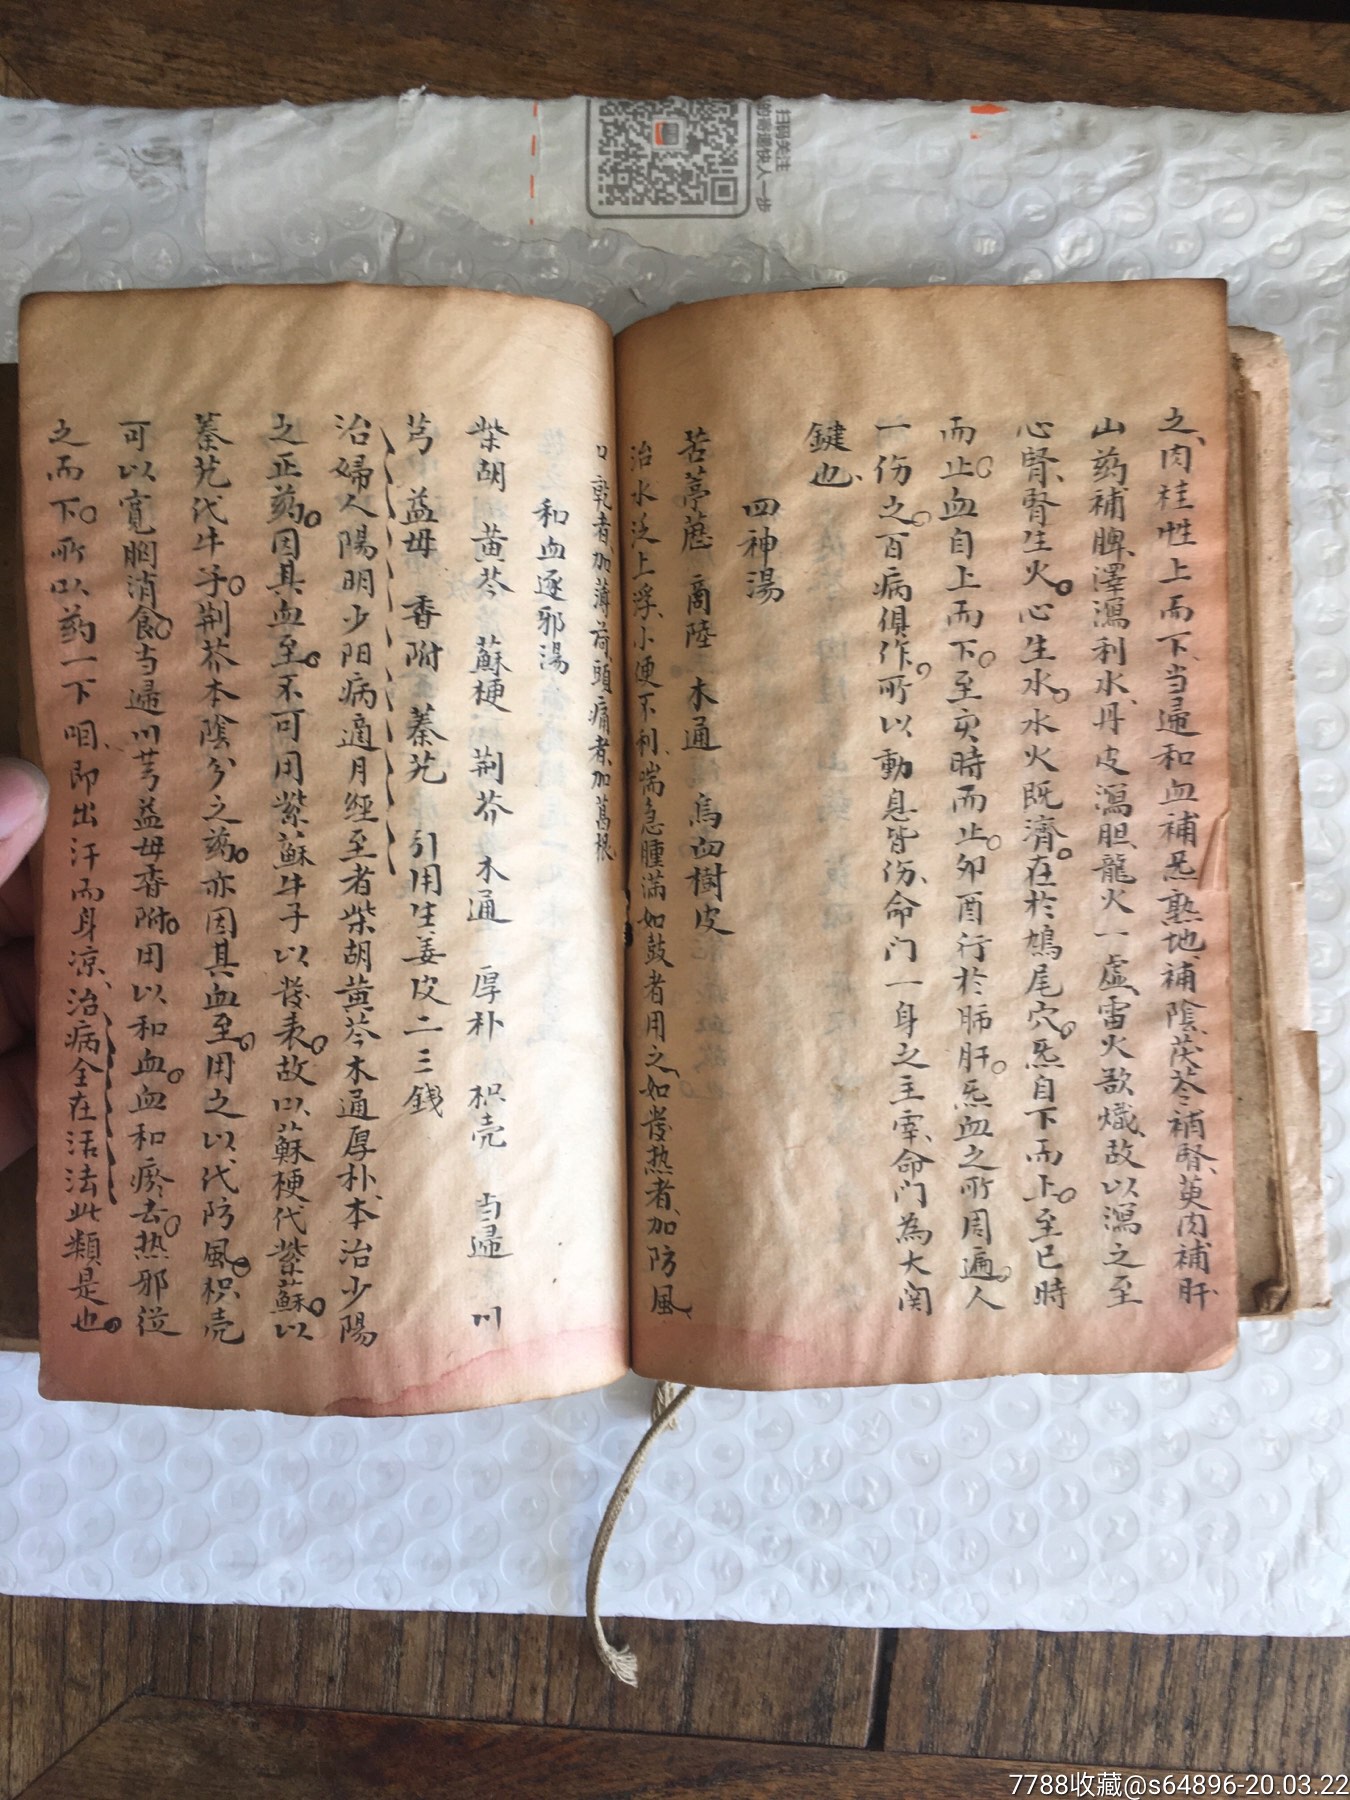 之、肉桂性上而下、当歸和血補炁、熟地補陰、茯苓補腎、萸肉補肝、
山药補脾、澤瀉利水、丹皮瀉胆、龍火一虚、雷火欲熾、故以瀉之至
心腎、腎生火。心生水。水火既濟。在於鳩尾穴。炁自下而上。至巳時
而止。血自上而下。至亥時而止。卯酉行於肺肝。炁血之所周遍。人
一伤之。百病俱作。所以動息皆伤、命门一身之主宰、命门為大関
鍵也、
四神湯
苦葶藶 商陸 木通 烏桕樹皮
治水泛上浮、小便不利、喘急腫滿如鼓者用之。如發热者、加防風、
口乾者、加薄荷、頭痛者、加葛根
和血逐邪湯
柴胡 黄芩 蘇梗 荆芥 木通 厚朴 枳壳 当歸 川
芎 益母 香附 蓁艽 引用生姜皮二三錢
治婦人陽明少阳病適月經至者柴胡黄芩木通厚朴、本治少陽
之正药。因其血至。不可用紫蘇牛子以發表。故以蘇梗代紫蘇。以
蓁艽代牛子。荆芥本陰分之药。亦因其血至。用之以代防風。枳壳
可以寬胸消食。当歸川芎益母香附。用以和血。血和瘀去。热邪從
之而下。所以药一下咽、即出汗而身凉、治病全在活法此類是也。
扫码关注
快人一步
7788收藏@s64896-20.03.22